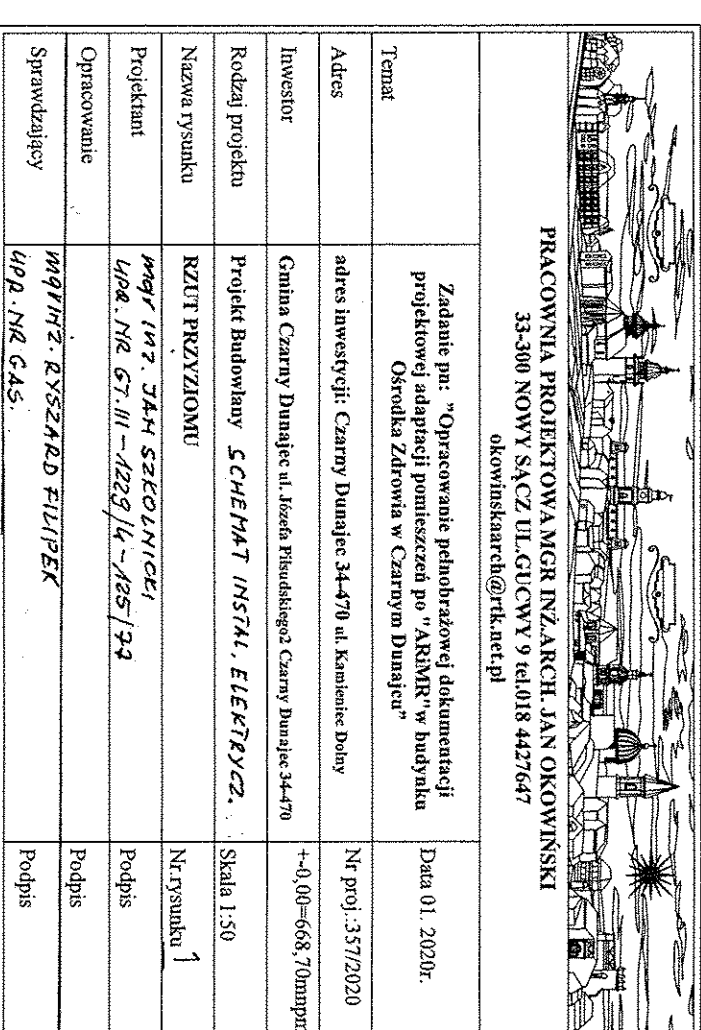 PRACOWNIA PROJEKTOWA MGR INŻ.ARCH. JAN OKOWIŃSKI
33-300 NOWY SĄCZ UL.GUCWY 9 tel.018 4427647
okowinskaarch@rtk.net.pl
Temat
Zadanie pn: "Opracowanie pełnobrażowej dokumentacji
projektowej adaptacji pomieszczeń po "ARiMR"w budynku
Ośrodka Zdrowia w Czarnym Dunajcu"
Data 01. 2020r.
Adres
adres inwestycji: Czarny Dunajec 34-470 ul. Kamieniec Dolny
Nr proj.:357/2020
Inwestor
Gmina Czarny Dunajec ul. Józefa Piłsudskiego2 Czarny Dunajec 34-470
+-0,00=668,70mnpm
Rodzaj projektu
Projekt Budowlany SCHEMAT INSTAL. ELEKTRYCZ.
Skala 1:50
Nazwa rysunku
RZUT PRZYZIOMU
Nr.rysunku 1
Projektant
mgr inż. JAN SZKOLNICKI
UPR. NR GT.III-1229/4-125/77
Podpis
Opracowanie
Podpis
Sprawdzający
mgr inż. RYSZARD FILIPEK
UPR. NR GAS.
Podpis